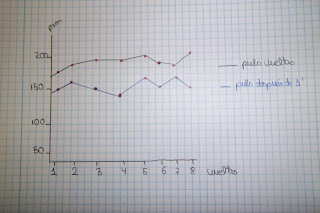 ppm
200
150
100
50
1 2 3 4 5 6 7 8
vueltas
pulso vueltas
pulso después de 1'